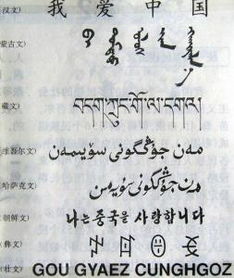 汉文) 我 爱 中 国
蒙古文)
藏文) བདག་ཀྲུང་གོ་ལ་དགའ།
维吾尔文) مەن جۇڭگونى سۆيىمەن
哈萨克文) مەن جۇڭگونى سۇيەمىن
朝鲜文) 나는 중국을 사랑합니다
(彝文)
(壮文) GOU GYAEZ CUNGHGOZ